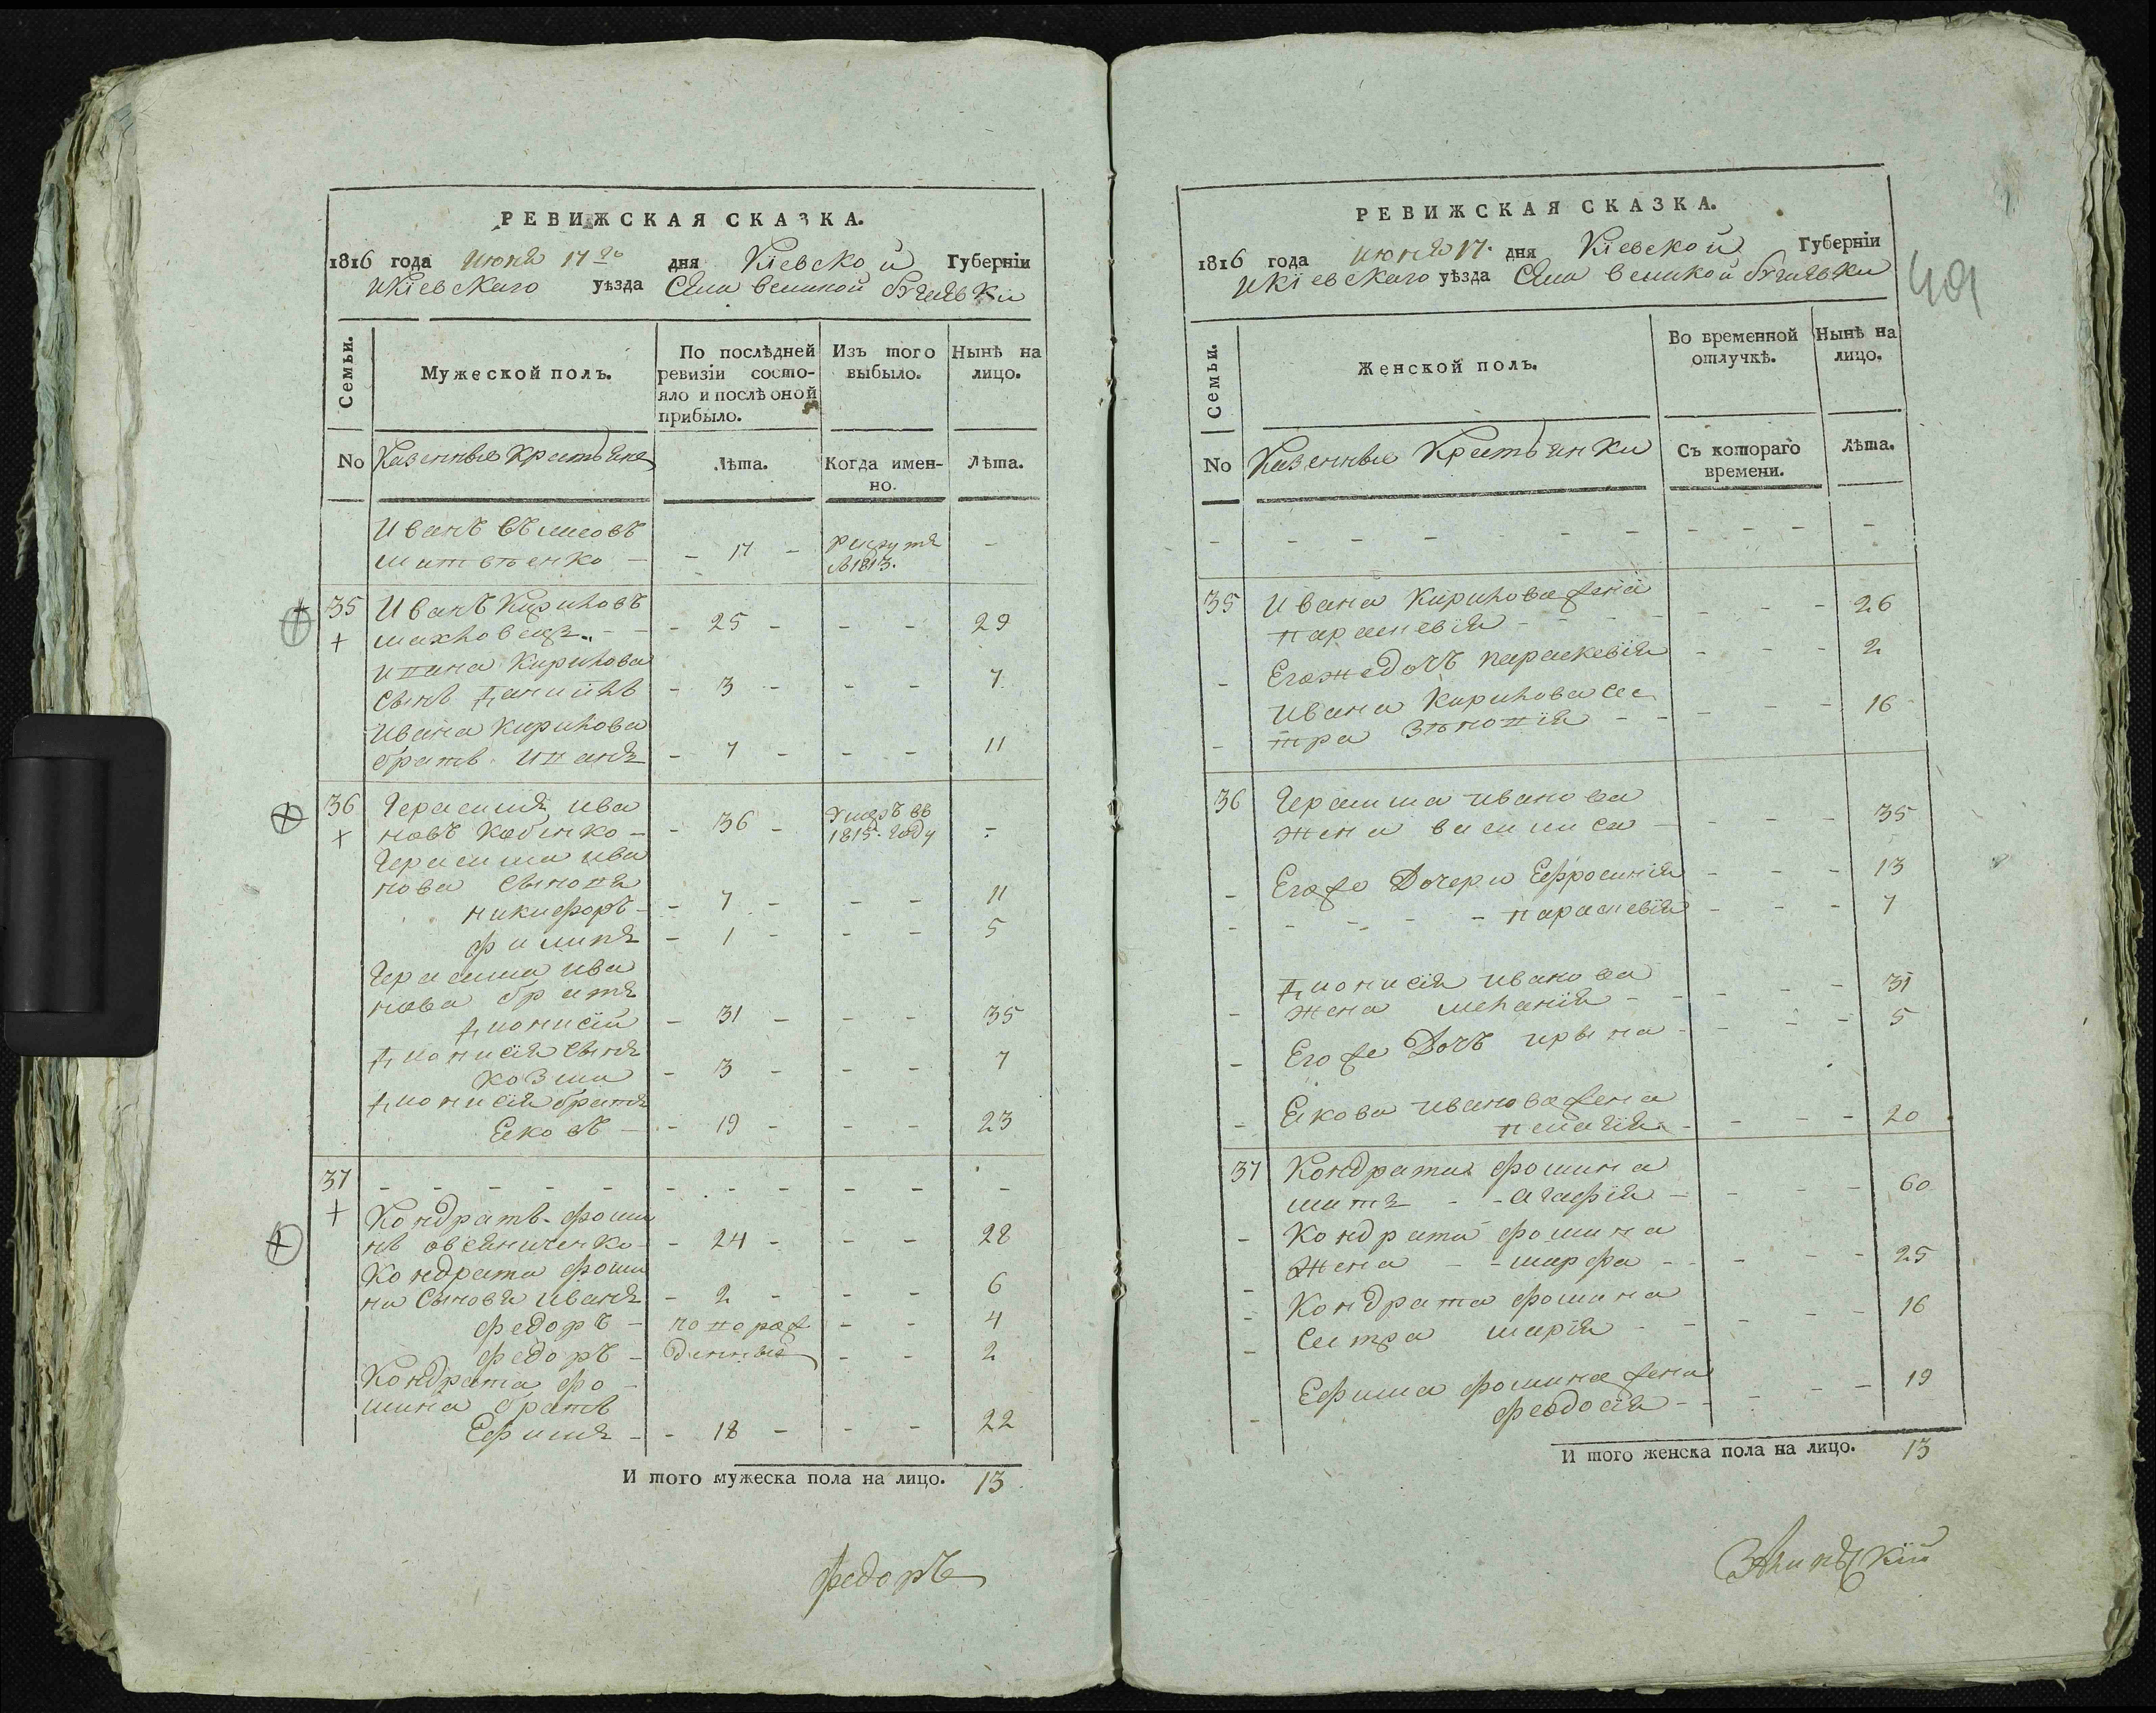 РЕВИЖСКАЯ СКАЗКА.
1816 года июня 17го дня Кіевской Губерніи
Икіевскаго уѣзда Села великой
Семьи.
Мужеской полъ.
По послѣдней ревизіи состо-
яло и послѣ оной
прибыло.
Изъ того
выбыло.
Нынѣ на
лицо.
No Казенные крестьяне
Лѣта.
Когда имен-
но.
Лѣта.
Иванъ
- 17 -
1813.
-
35 Иванъ Кириловъ
- 25 - - - 29
Кирилова
сынъ Даниилъ - 3 - - - 7
Ивана Кирилова
братъ - 7 - - - 11
36 Герасимъ Ива
новъ - - 36 - Умеръ въ
1815. году -
Герасима Ива
нова сыновя
никифоръ - - 7 - - - 11
филипъ - 1 - - - 5
Герасима Ива
нова братъ
Дионисій - 31 - - - 35
Дионисія сынъ
козма - 3 - - - 7
Дионисія братъ
Еяковъ - - 19 - - - 23
37 - - - - - - - - - - -
Кондратъ фоми
нъ овсяниченко - - 24 - - - 28
Кондрата фоми
на сыновя иванъ - 2 - - - 6
федоръ - новорож - - 4
федоръ - денные - - 2
Кондрата фо-
мина братъ
Ефимъ - - 18 - - - 22
И того мужеска пола на лицо. 13
федоръ
РЕВИЖСКАЯ СКАЗКА.
1816 года июня 17. дня Кіевской Губерніи
Икіевскаго уѣзда Села великой
49
Семьи.
Женской полъ.
Во временной
отлучкѣ.
Нынѣ на
лицо.
No Казенные Крестьянки
Съ котораго
времени.
Лѣта.
- - - - - - - - - - -
35 Ивана Кирилова жена
параскевія - - - - 26
Егоже дочъ параскевія - - - 2
Ивана Кирилова сес
тра Зѣновія - - - - - 16
36 Герасима иванова
жена василиса - - - - 35
Егоже Дочери Ефросинія - - - 13
- - - - - параскевія - - - 7
Дионисія иванова
жена меланія - - - - 31
Его же Дочъ ирына - - - - 5
Еякова иванова жена
пелагія - - - - 20
37 Кондрата фомина
мать - - агафія - - - - 60
Кондрата фомина
жена - - марфа - - - - - 25
Кондрата фомина
сестра марія - - - - - 16
Ефима фомина жена
феодосія - - - - - 19
И того женска пола на лицо. 13